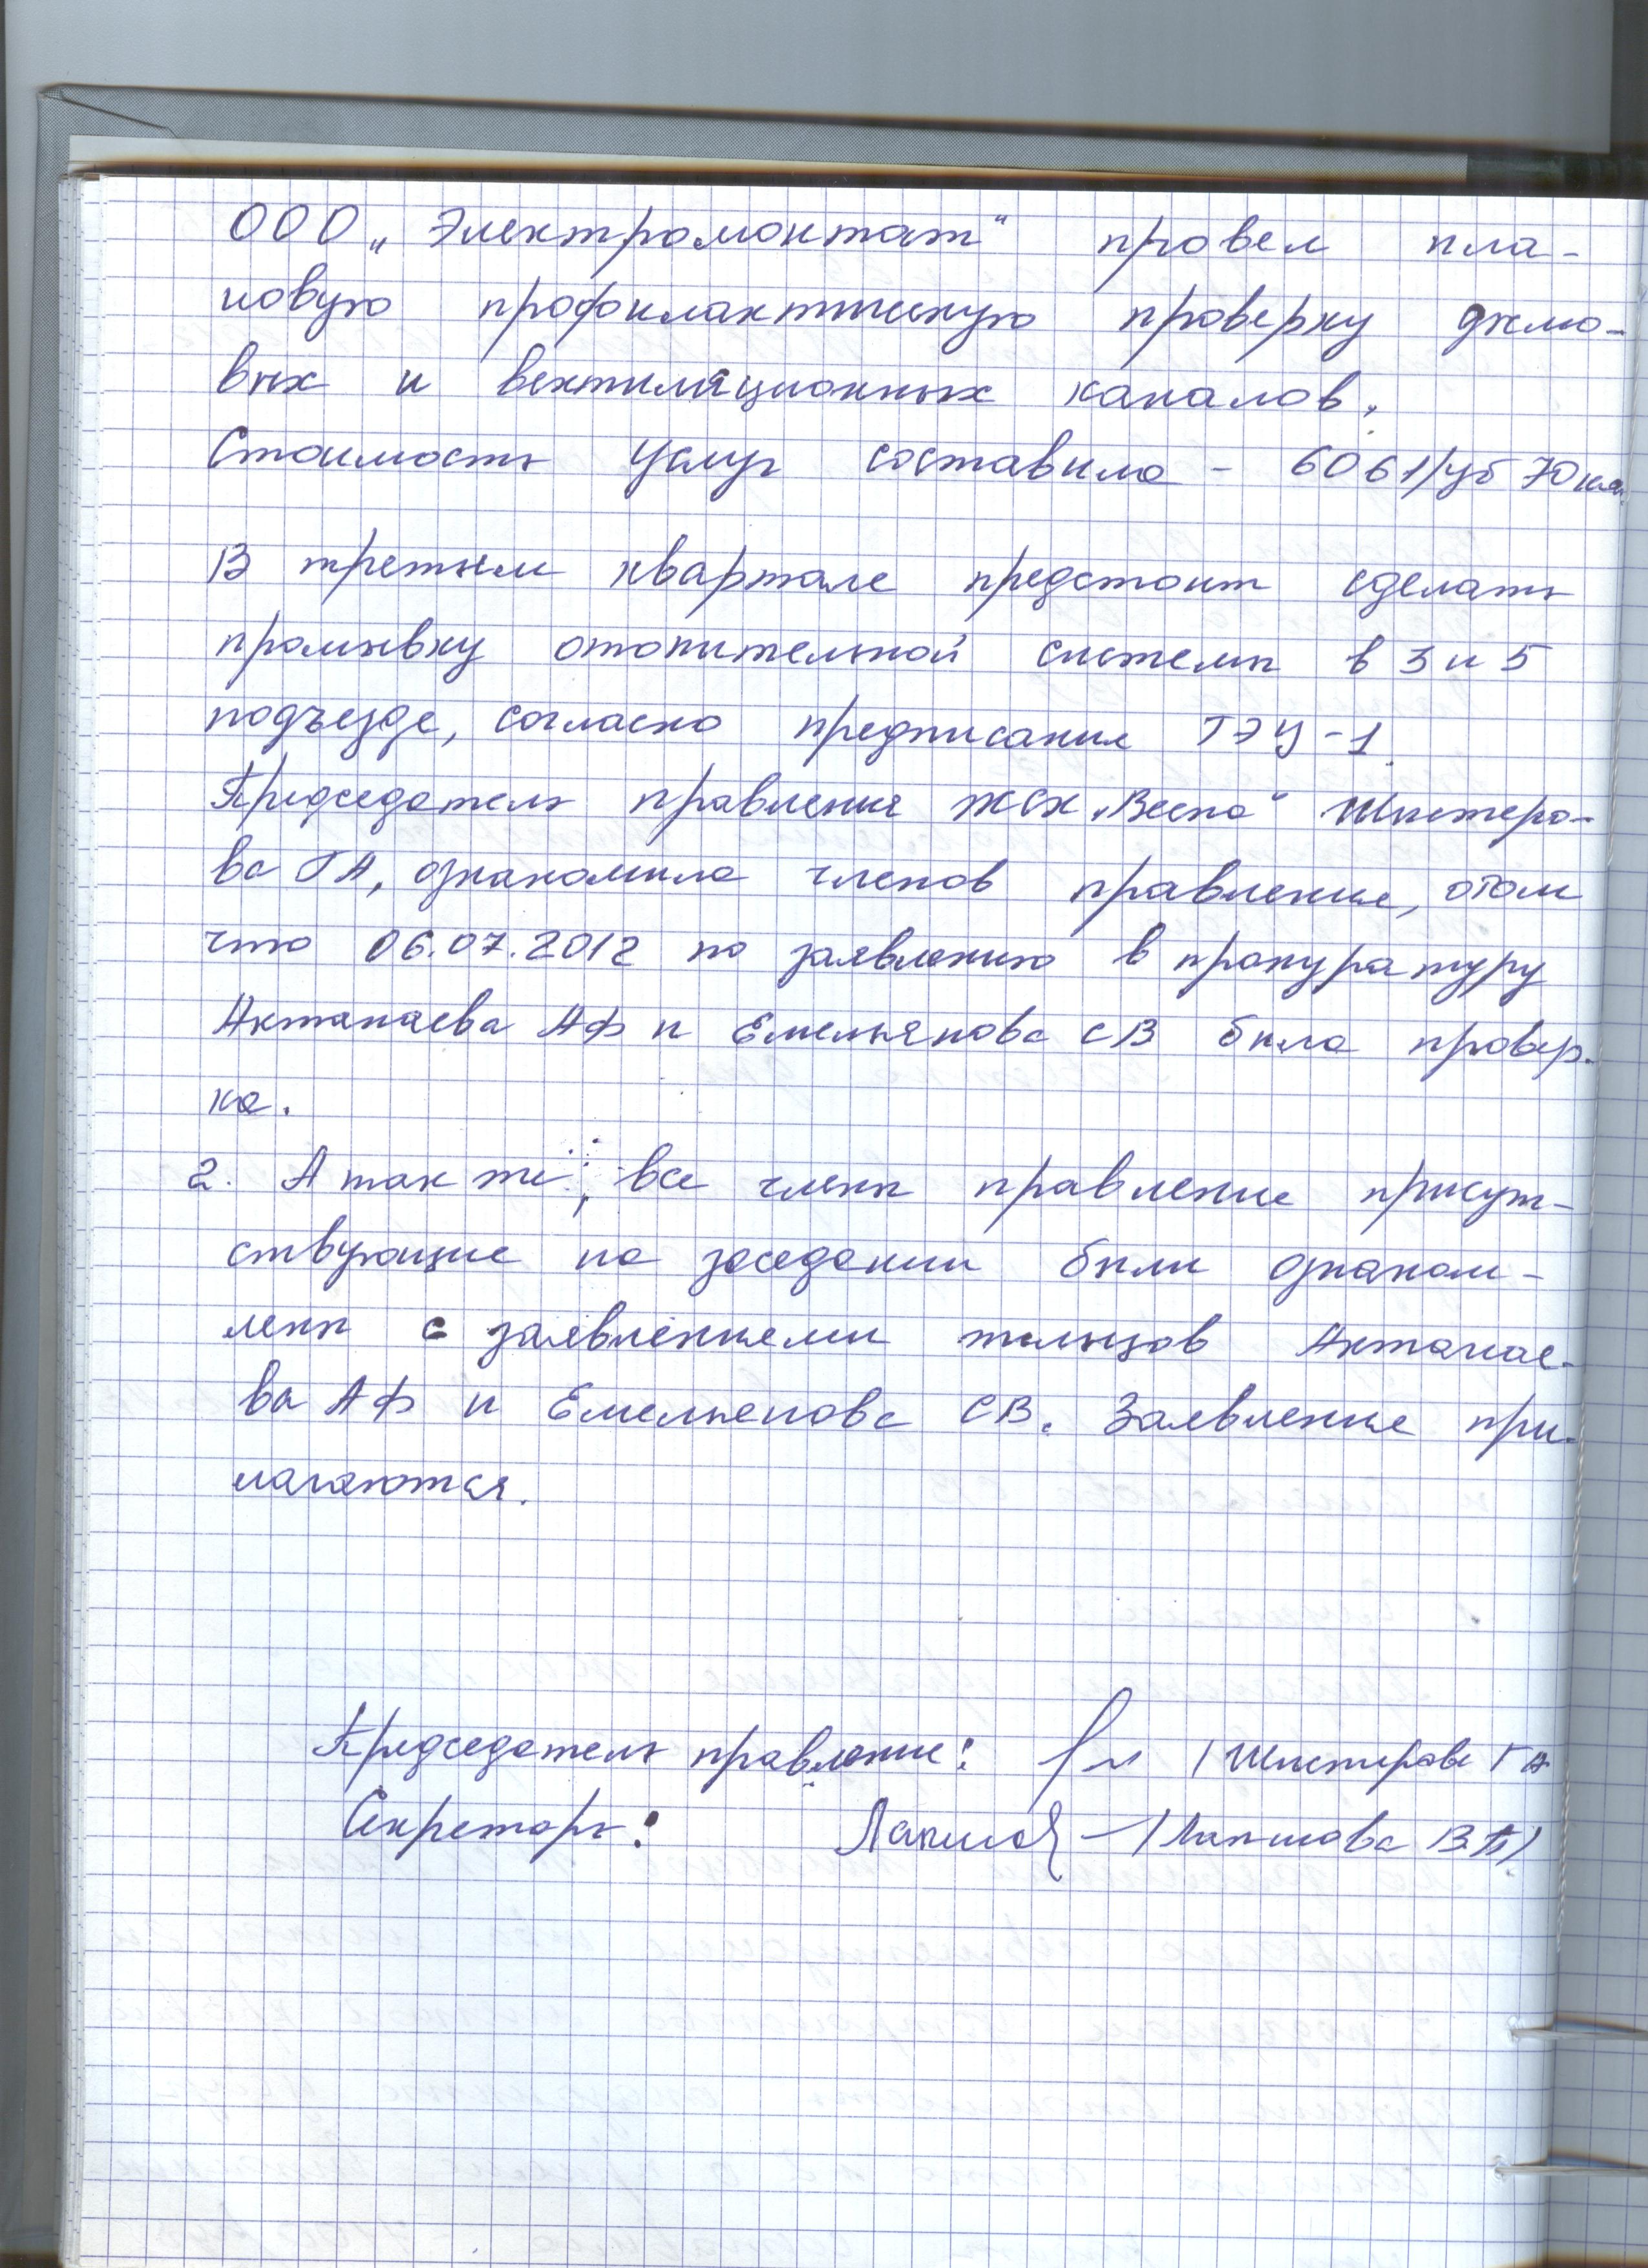 ООО „Электромонтаж" провел пла-
новую профилактическую проверку дымо-
вых и вентиляционных каналов.
Стоимость услуг составила - 6061руб 70коп
В третьем квартале предстоит сделать
промывку отопительной системы в 3 и 5
подъезде, согласно предписания ТЭЦ-1.
Председатель правления ЖСК „Весна" Шистеро-
ва ГА, ознакомила членов правления, отом
что 06.07.2012 по заявлению в прокуратуру
Актанаева АФ и Емельянова СВ была провер-
ка.
2. А так же, все члены правление присут-
ствующие на заседании были ознаком-
лены с заявлениями жильцов Актанае-
ва АФ и Емельянова СВ. Заявление при-
лагаются.
Председатель правление: / Шистерова ГА
Секретарь: Лапшова В.П/